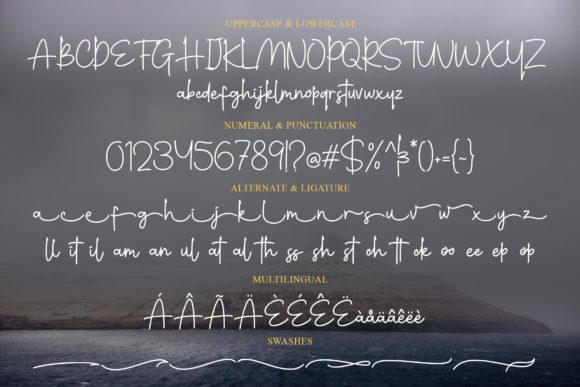 UPPERCASE & LOWERCASE
ABCDEFGHIJKLMNOPQRSTUVWXYZ
abcdefghijklmnopqrstuvwxyz
NUMERAL & PUNCTUATION
0123456789!?@#$%^&*()+={-}
ALTERNATE & LIGATURE
a c e f g h i j k l m n r s u v w x y z
ll it il am an ul at al th ss sh st oh tt ck oo ee ep op
MULTILINGUAL
ÁÂÃÄÈÉÊËàåäâêëè
SWASHES